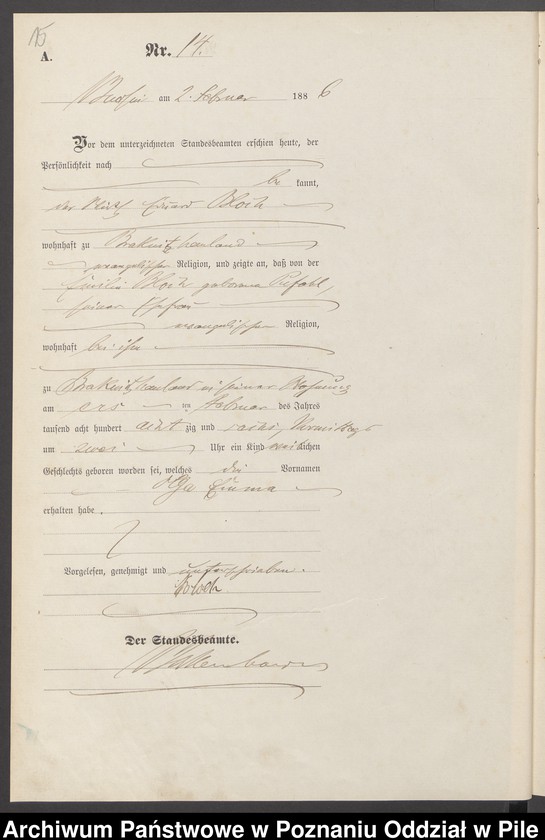 15
A.
Nr. 14.
am 2. Februar 1886
Vor dem unterzeichneten Standesbeamten erschien heute, der
Persönlichkeit nach
be kannt,
der Eduard Bloch
wohnhaft zu Braknitz hauland
evangelischer Religion, und zeigte an, daß von der
Emilie Bloch geborene Pufahl,
seiner Ehefrau
evangelischer Religion,
wohnhaft bei ihm
zu Braknitz hauland in seiner Wohnung
am ersten Februar des Jahres
tausend acht hundert achtzig und sechs, Vormittags
um zwei Uhr ein Kind weiblichen
Geschlechts geboren worden sei, welches die Vornamen
Olga Emma
erhalten habe.
Vorgelesen, genehmigt und unterschrieben.
Bloch
Der Standesbeamte.
Archiwum Państwowe w Poznaniu Oddział w Pile